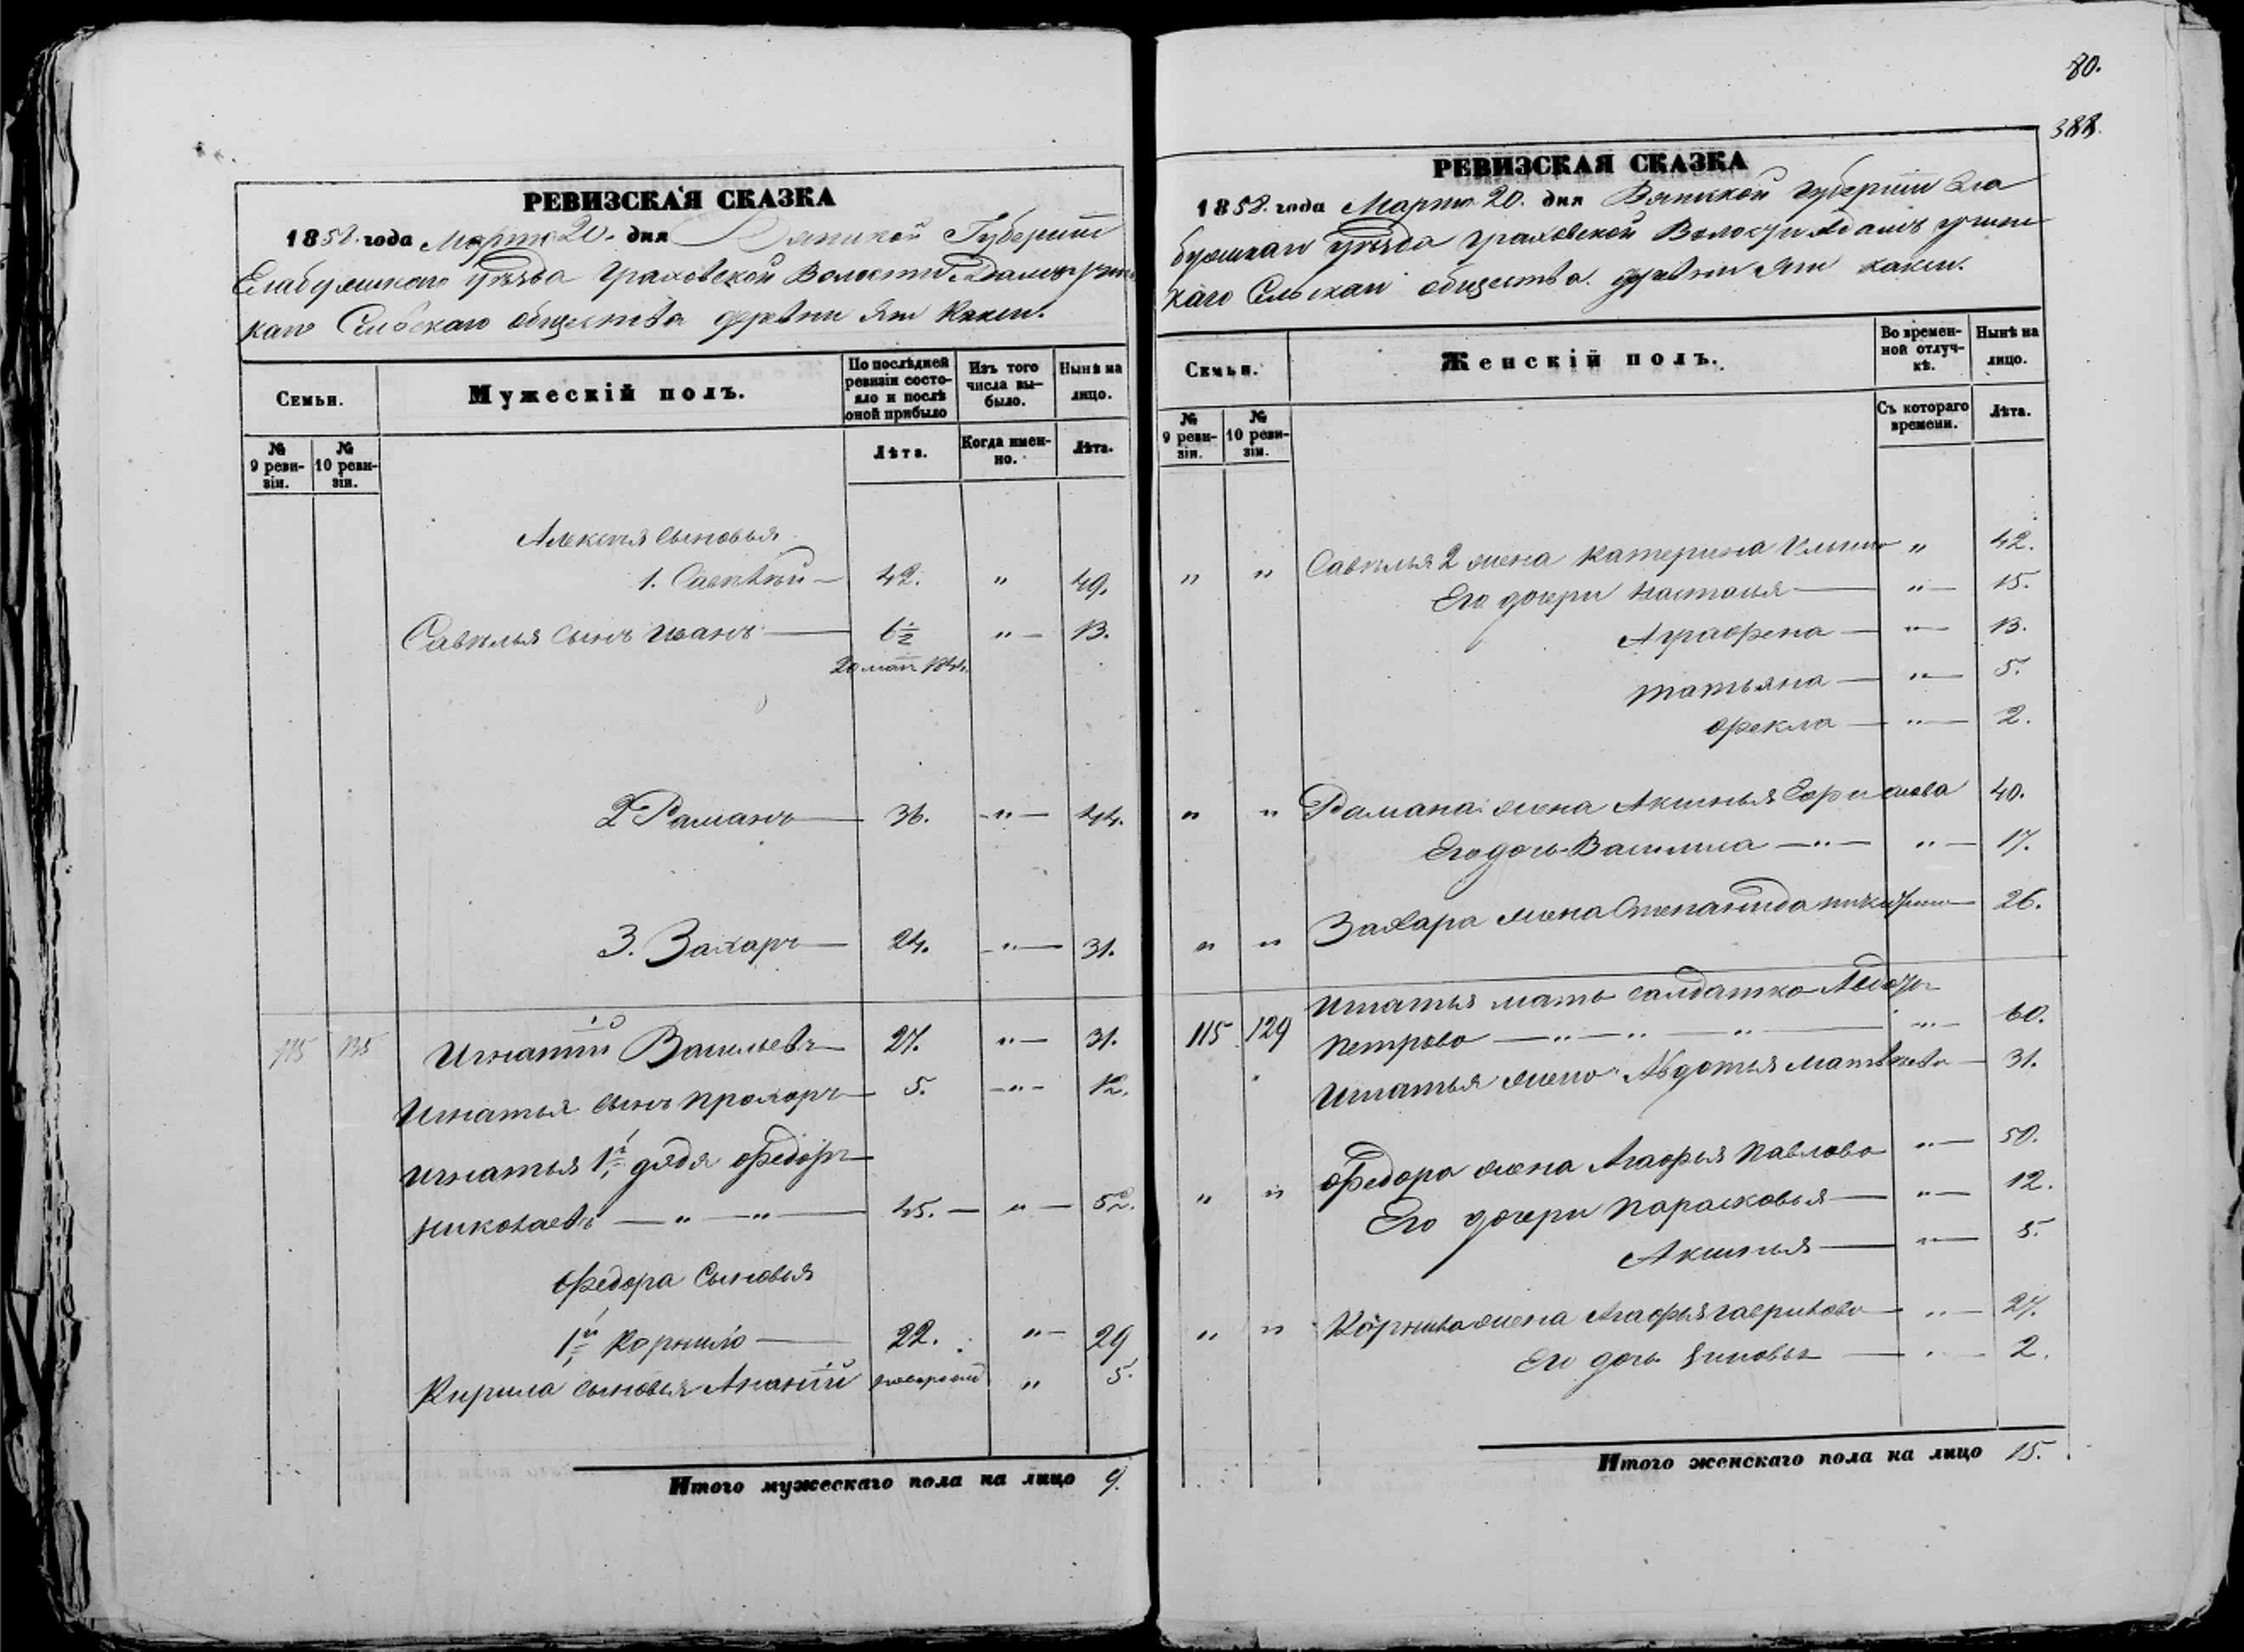 РЕВИЗСКАЯ СКАЗКА
1858. года Марта 20. дня Вятской Губерніи
Елабужскаго Уѣзда Граховской Волости
каго Сельскаго общества деревни Ятъ Какси.
Семьи.
Мужескій полъ.
По послѣдней ревизіи состояло и послѣ оной прибыло
Изъ того числа выбыло.
Нынѣ на лицо.
№ 9 ревизіи.
№ 10 ревизіи.
Лѣта.
Когда именно.
Лѣта.
Алексѣя сыновья
1. Савелій — 42. " 49.
Савелья сынъ Иванъ — 6½ " — 13.
20 1844.
2 Раманъ — 36. — " — 44.
3. Захаръ — 24. — " — 31.
115 135 Игнатій Васильевъ — 27. " — 31.
Игнатья сынъ Прохоръ — 5. — " — 12.
Игнатья 1й дядя Федоръ —
Николаевъ — " — " — 45. — " — 52.
Федора Сыновья
1й Корнило — 22. " — 29
Кирила сыновья Ананій " 5.
Итого мужескаго пола на лицо 9.
80.
388.
РЕВИЗСКАЯ СКАЗКА
1858. года Марта 20. дня Вятской Губерніи Ела
бужскаго Уѣзда Граховской Волости
каго Сельскаго общества деревни Ятъ какси.
Семьи.
Женскій полъ.
Во временной отлучкѣ.
Нынѣ на лицо.
№ 9 ревизіи.
№ 10 ревизіи.
Съ котораго времени.
Лѣта.
" " Савелья 2 жена Катерина " 42.
Его дочери Настасья — " — 15.
Аграфена — " — 13.
Татьяна — " — 5.
Фекла — " — 2.
" " Рамана жена Аксинья 40.
Его дочь Василиса — " — " — 17.
" " Захара жена Степанида 26.
Игнатья мать салдатка
115. 129 Петрова — " — " — " — " — 60.
Игнатья жена Авдотья Матвѣева — 31.
" " Федора жена Агафья Павлова " — 50.
Его дочери Парасковья — " — 12.
Аксинья — " — 5.
" " Корнила жена Агафья Гаврилова — " — 27.
Его дочь Зиновья — " — 2.
Итого женскаго пола на лицо 15.